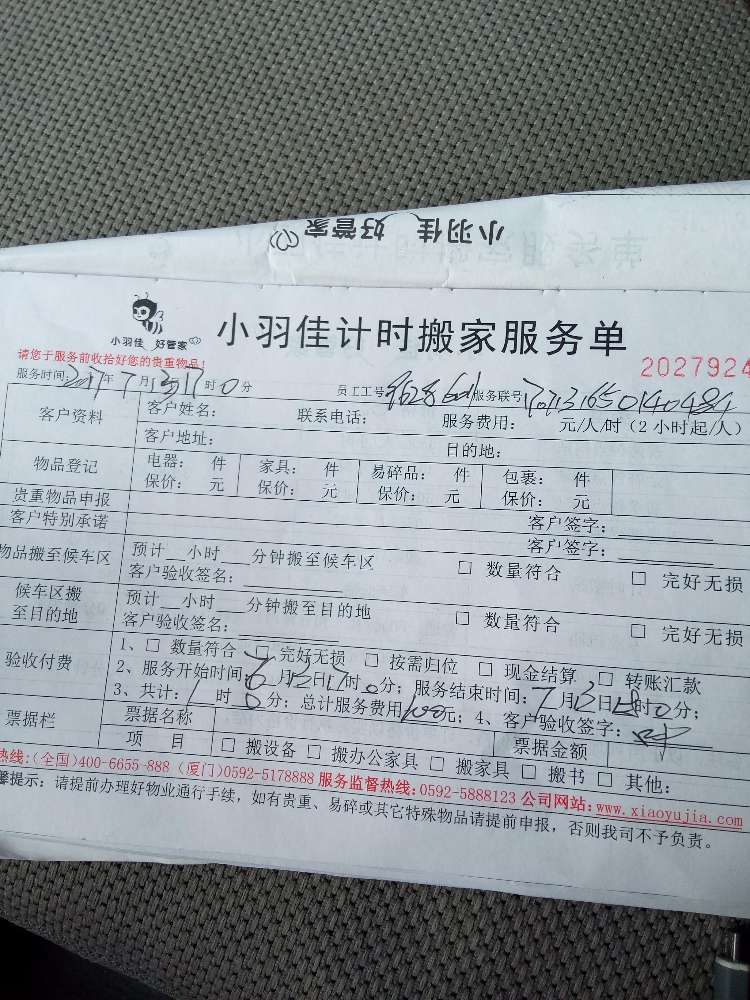 小羽佳 好管家
小羽佳 好管家
小羽佳计时搬家服务单
请您于服务前收拾好您的贵重物品！
2027924
服务时间:2017年7月13日17时0分 员工工号 服务联号
客户资料 客户姓名： 联系电话： 服务费用： 元/人/时（2小时起/人）
客户地址： 目的地：
物品登记 电器： 件 家具： 件 易碎品： 件 包裹： 件
保价： 元 保价： 元 保价： 元 保价： 元
贵重物品申报 客户签字：
客户特别承诺 客户签字：
物品搬至候车区 预计__小时__分钟搬至候车区 □ 数量符合 □ 完好无损
客户验收签名：
候车区搬至目的地 预计__小时__分钟搬至目的地 □ 数量符合 □ 完好无损
客户验收签名：
验收付费 1、□ 数量符合 □ 完好无损 □ 按需归位 □ 现金结算 □ 转账汇款
2、服务开始时间： 月 日17时0分；服务结束时间：7月13日18时0分；
3、共计：1时0分；总计服务费用100元；4、客户验收签字：
票据栏 票据名称 票据金额
项 目 □ 搬设备 □ 搬办公家具 □ 搬家具 □ 搬书 □ 其他：
热线:(全国)400-6655-888 (厦门)0592-5178888 服务监督热线:0592-5888123 公司网站:www.xiaoyujia.com
馨提示：请提前办理好物业通行手续，如有贵重、易碎或其它特殊物品请提前申报，否则我司不予负责。